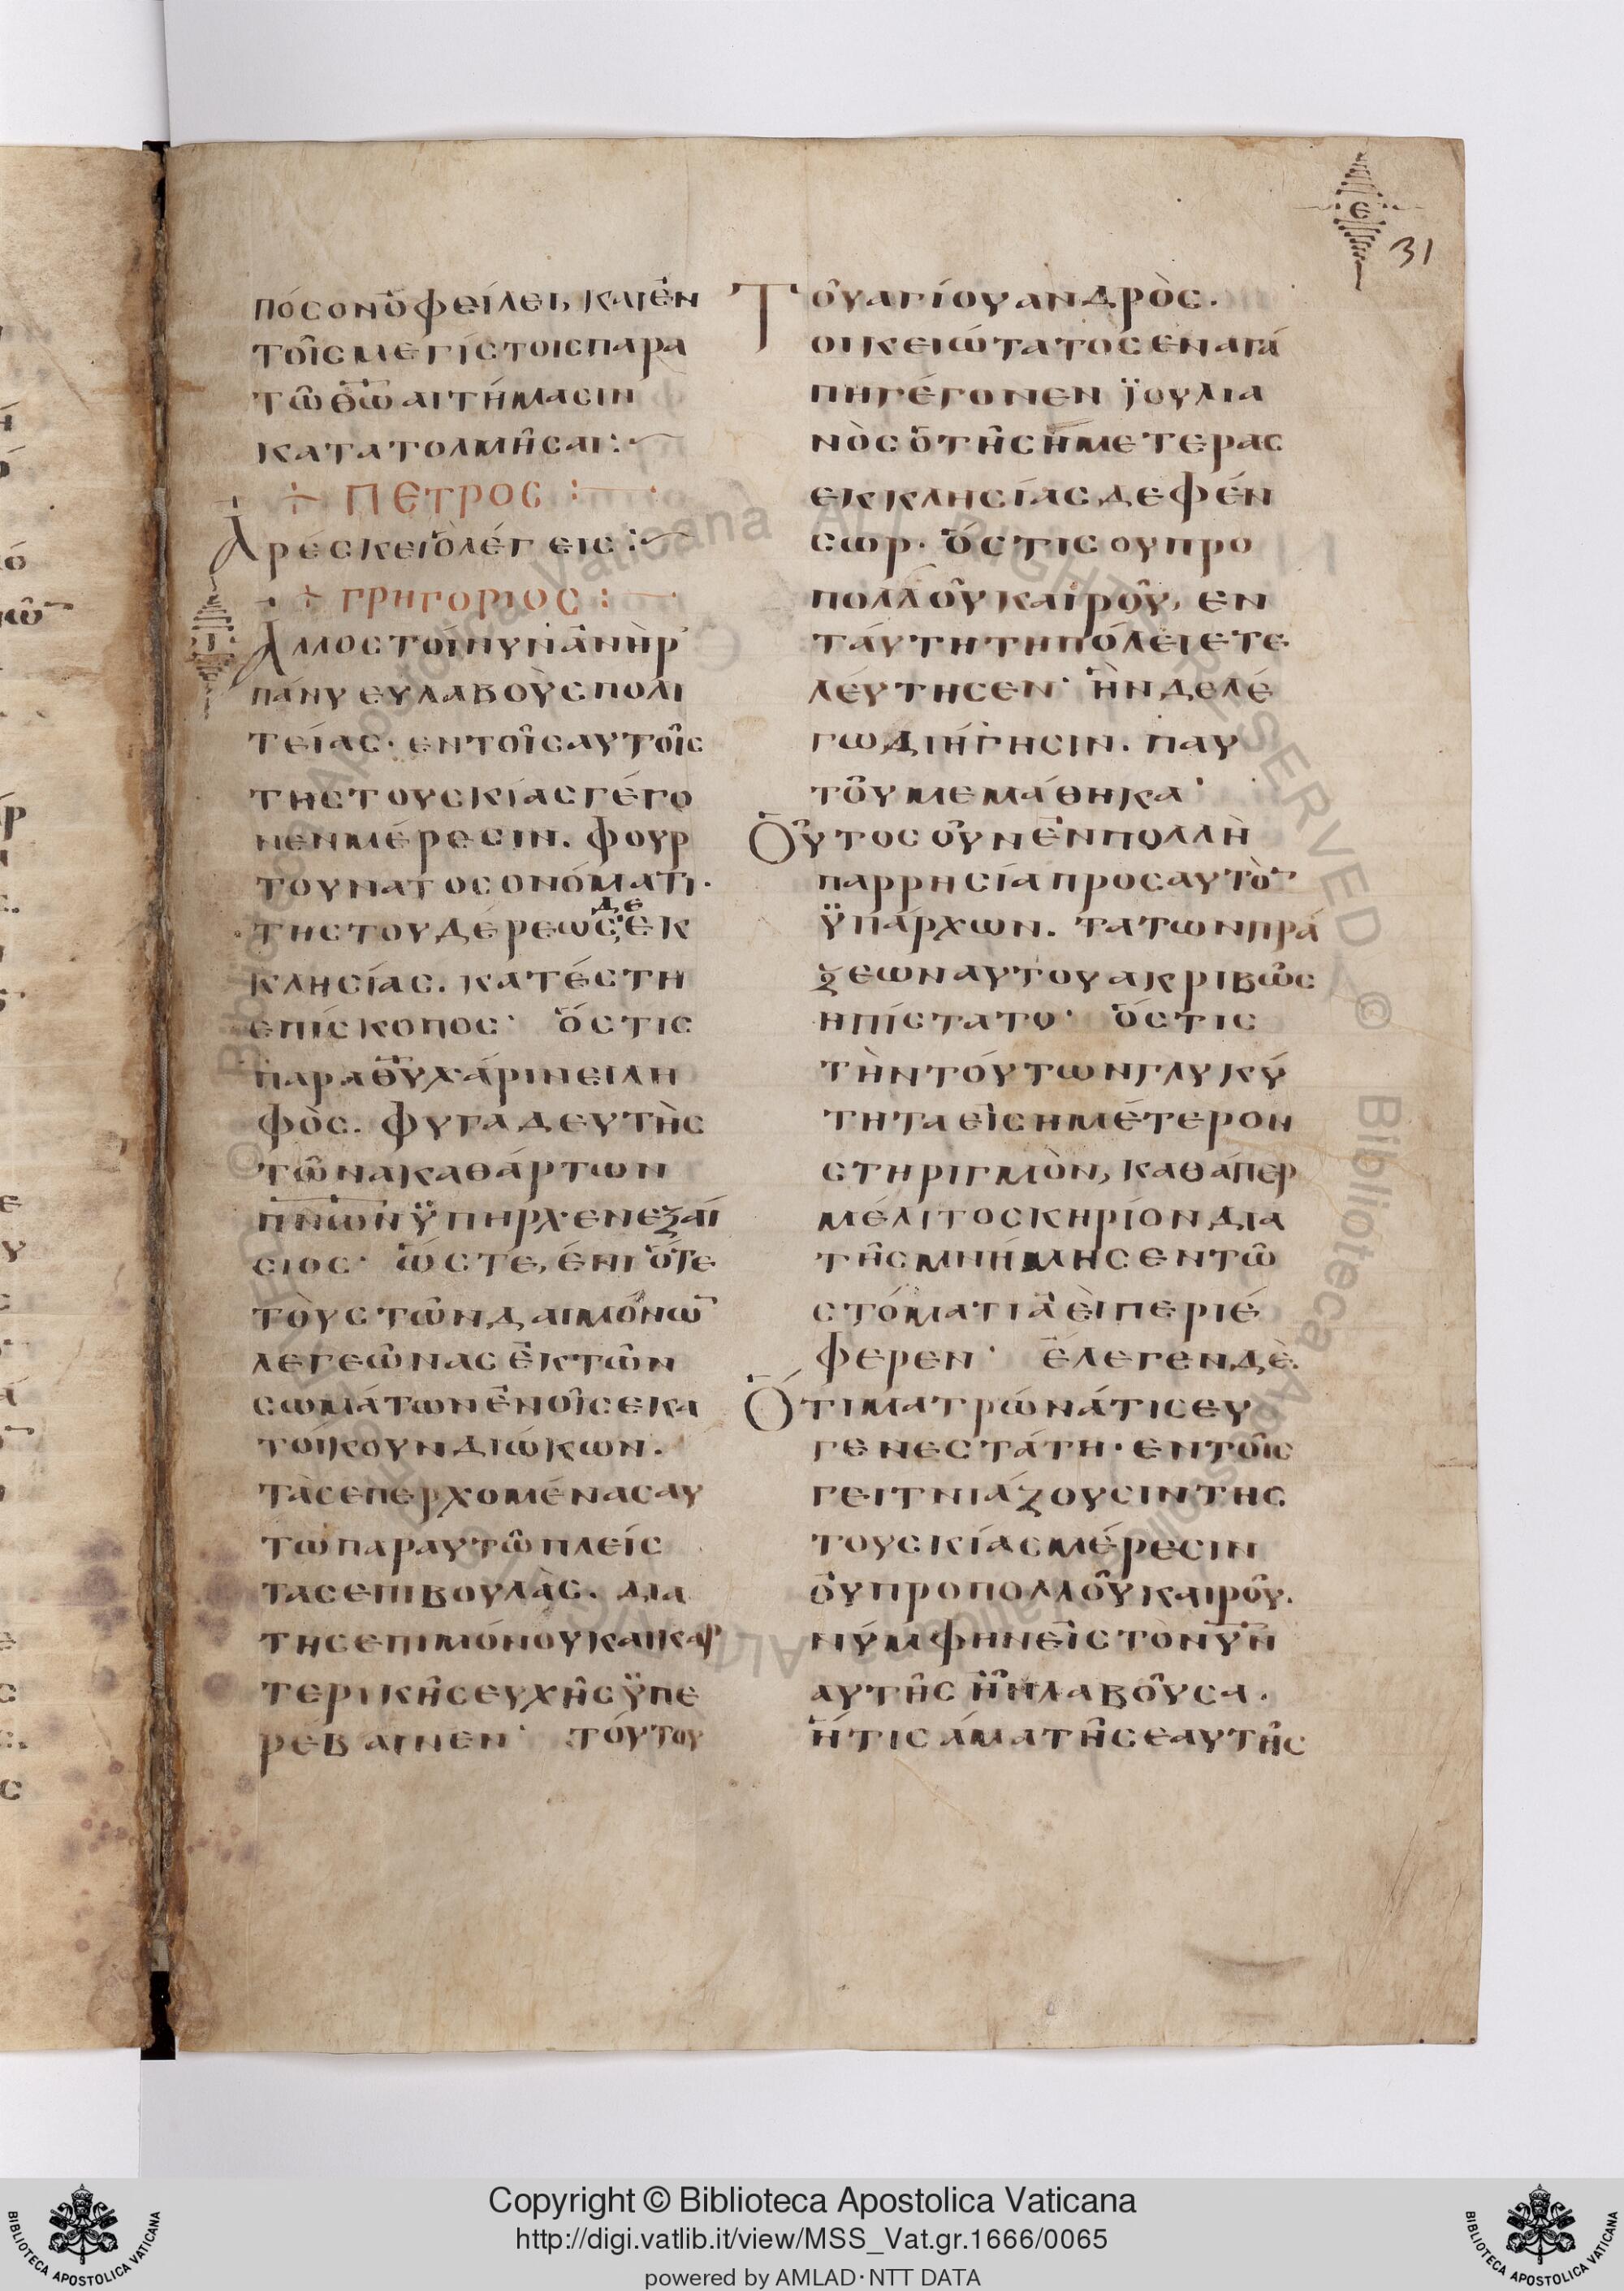 Ε
31
πόσον ὀφείλει, και ἐν
τοῖς μεγίστοις παρα
τῶ θ̅ῶ̅ αιτήμασιν
κατατολμῆσαι :~
+ ΠΕΤΡΟΣ :—
Αρέσκει ὃ λέγεις :~
+ ΓΡΗΓΟΡΙΟΣ :—
Ι
Αλλος τοίνυν ἀνὴρ
πάνυ ευλαβοὺς πολι
τείας· εν τοῖς αυτοῖς
της τουσκίας γέγο
νεν μέρεσιν. φουρ
τουνατος ονόματι.
της τουδέρεως δε εκ
κλησίας. κατέστη
επίσκοπος· ὅστις
παρα θ̅υ̅ χάριν ειλη
φὸς. φυγαδευτὴς
τῶν ακαθάρτων
π̅ν̅ω̅ν̅ ϋπῆρχεν εξαί
σιος· ὥστε, ἐπι ὅτε
τὸυς τῶν δαιμόνω̅
λεγεῶνας ἐκ τῶν
σωμάτων ἐν οἷς εκα
τοίκουν διώκων.
τὰς επερχομένας αυ
τω παρ αυτῶ πλείσ
τας επιβουλὰς. δια
της επιμόνου και καρ
τερικῆς ευχῆς ϋπε
ρέβαινεν· τόυτου
Τοῦ αγίου ανδρὸς.
οικειώτατος εν αγά
πη γέγονεν ϊουλια
νὸς ὁ τῆς ἡμετερας
εκκλησίας δεφέν
σωρ. ὅστις ου προ
πολλοῦ καιροῦ, εν
τάυτη τη πόλει ετε
λέυτησεν· ἣν δε λέ
γω διήγησιν. παυ
τοῦ μεμάθηκα·
Οὗτος οὖν ἐν πολλὴ
παρρησία προς αυτὸ̅
ϋπάρχων. τα των πρά
ξεων αυτου ακριβῶς
ηπίστατο· ὅστις
τὴν τόυτων γλυκύ
τητα εὶς ημέτερον
στηριγμὸν, καθάπερ
μέλιτος κηρίον δια
τῆς μνήμης εν τῶ
στόματι ἀεὶ περιέ
φερεν· ἔλεγεν δὲ.
Ὅτι ματρώνά τις ευ
γενεστάτη· εν τοῖς
γειτνιάζουσιν της
τουσκίας μέρεσιν
ὀυ προ πολλοῦ καιροῦ.
νύμφην εὶς τὸν υ̅ν̅
αυτῆς ἦν λαβοῦσα.
ἥτις άμα τῆς εαυτῆς
Copyright © Biblioteca Apostolica Vaticana
http://digi.vatlib.it/view/MSS_Vat.gr.1666/0065
powered by AMLAD·NTT DATA
BIBLIOTECA APOSTOLICA VATICANA
BIBLIOTECA APOSTOLICA VATICANA